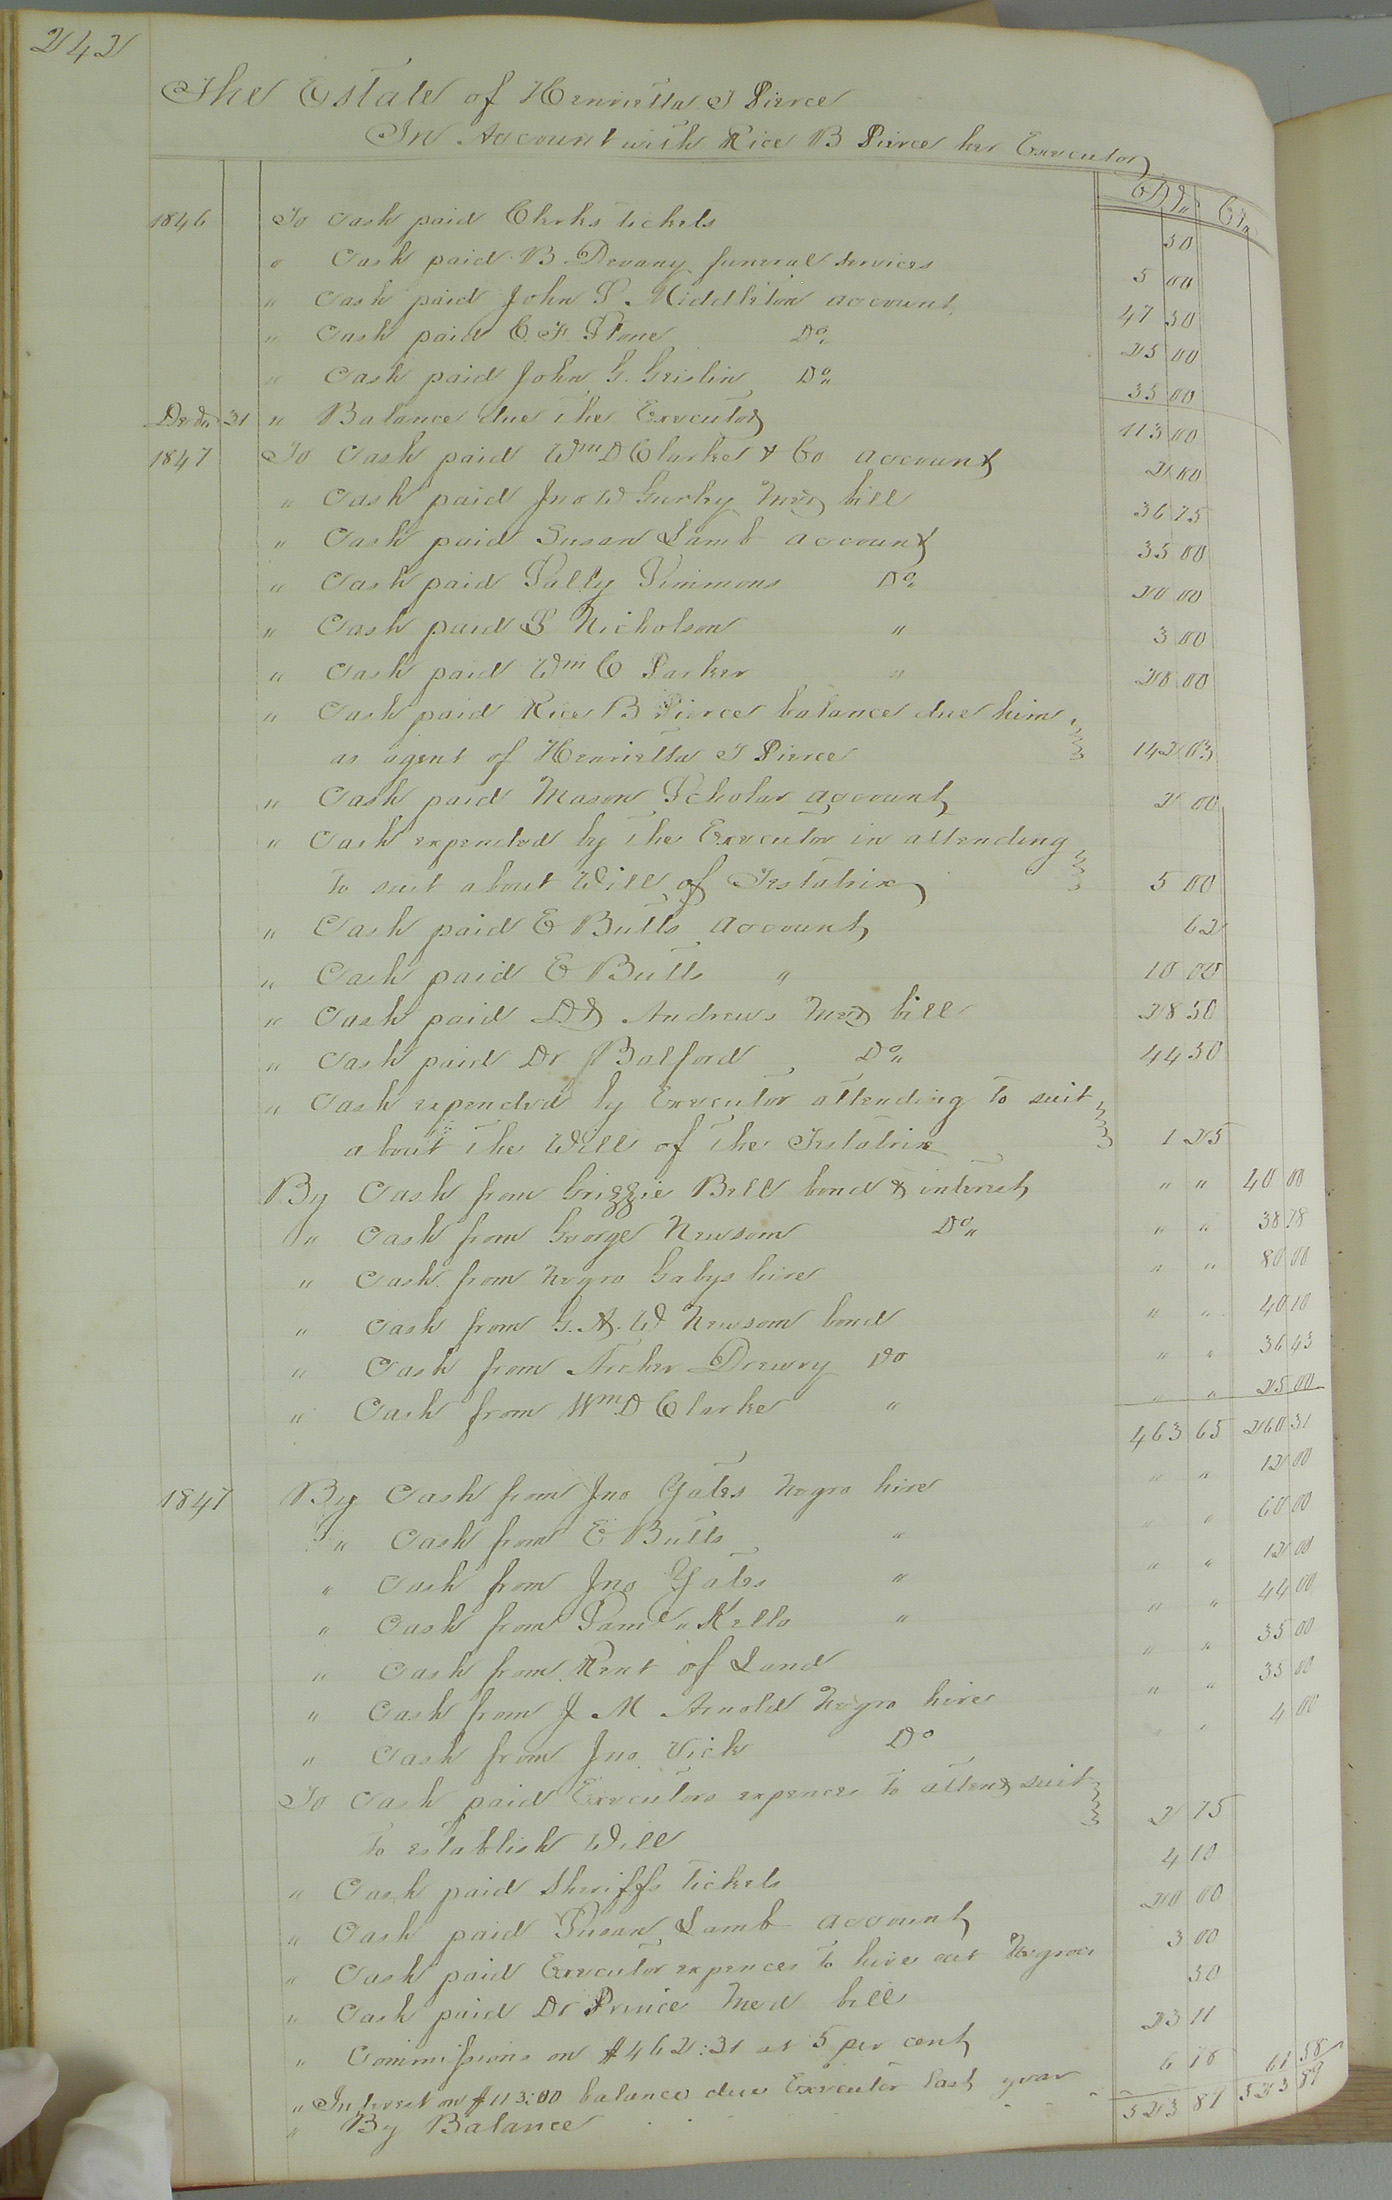 242
The Estate of Henrietta T Pierce
In Account with Rice B Pierce her Executor
Dr,, Cr,,
1846 To Cash paid Clerks tickets 50
" Cash paid B. Devany funeral services 5 00
" Cash paid John S. Middleton account 47 50
" Cash paid C. F. Stone Do,, 25 00
" Cash paid John G. Grislin Do,, 35 00
Decr,, 31 " Balance due the Executor 113 00
1847 To Cash paid Wm D Clarke & Co account 2 00
" Cash paid Jno W Gurley Med bill 36 75
" Cash paid Susan Lamb account 35 00
" Cash paid Sally Simmons Do,, 20 00
" Cash paid S Nicholson " 3 00
" Cash paid Wm C Parker " 28 00
" Cash paid Rice B Pierce balance due him
as agent of Henrietta T Pierce 142 03
" Cash paid Mason Scholar account 2 00
" Cash expended by the Executor in attending
to suit about Will of Testatrix 5 00
" Cash paid E Butts account 62
" Cash paid E Butts " 10 00
" Cash paid DD Andrews Med bill 28 50
" Cash paid Dr Balford Do,, 44 50
" Cash expended by Executor attending to suit
about the Will of the Testatrix 1 25
By Cash from Grizzie Bell bond & interest " " 40 00
" Cash from George Newsom Do,, " " 38 78
" Cash from Negro Gabys hire " " 80 00
" Cash from G. A. W Newsom bond " " 40 10
" Cash from Archer Drewry Do " " 36 43
" Cash from Wm D Clarke " " " 25 00
463 65 260 31
1847 By Cash from Jno Yates Negro hire " " 12 00
" Cash from E Butts " " " 60 00
" Cash from Jno Yates " " " 12 00
" Cash from Saml,, Kello " " " 44 00
" Cash from Rent of Land " " 35 00
" Cash from J M Arnold Negro hire " " 35 00
" Cash from Jno Vick Do " " 4 00
To Cash paid Executors expences to attend suit
to establish Will 2 75
" Cash paid Sheriffs tickets 4 10
" Cash paid Susan Lamb account 20 00
" Cash paid Executor expences to hire out Negroes 3 00
" Cash paid Dr Prince Med bill 50
" Commissions on $462:31 at 5 per cent 23 11
" Interest on $113:00 balance due Executor last year 6 78
" By Balance 61 58
523 89 523 89